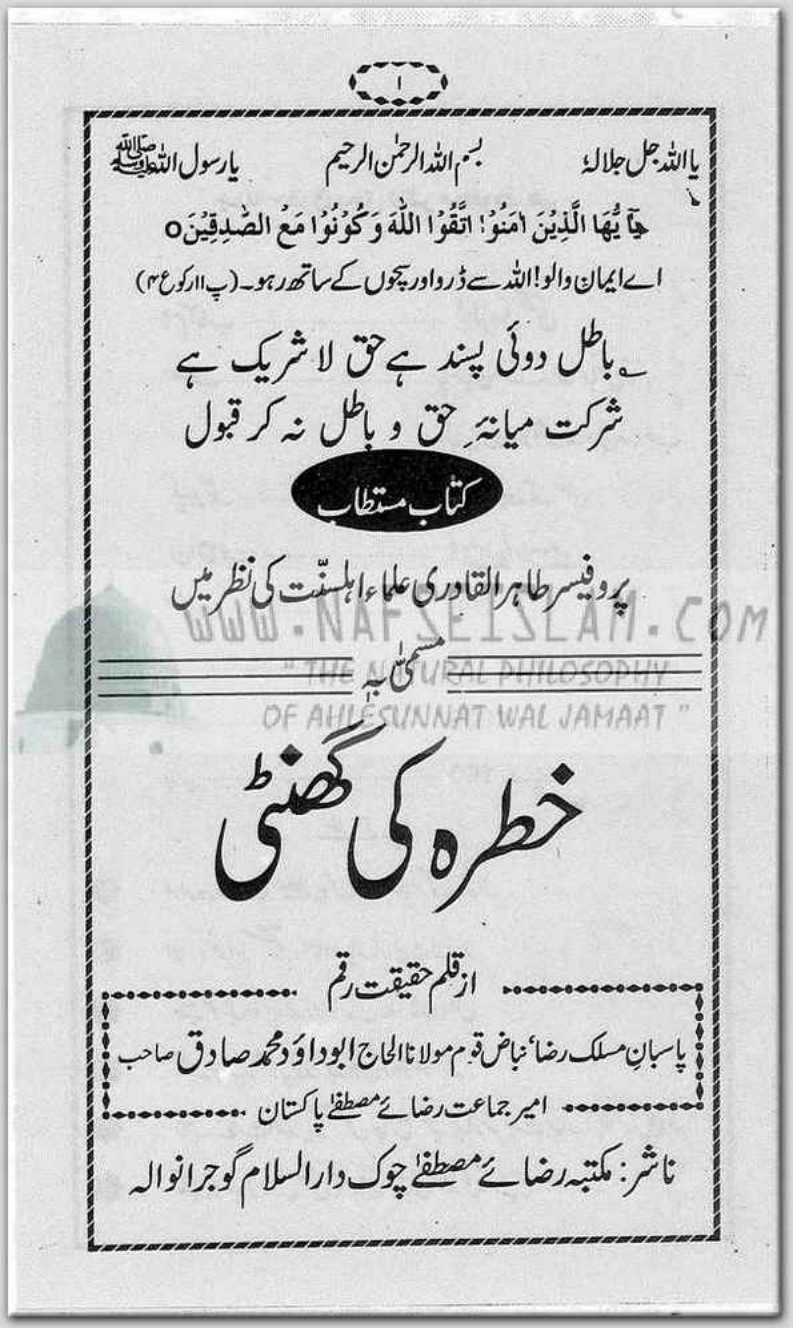 ۱
یا اللہ جل جلالہٗ بسم اللہ الرحمٰن الرحیم یا رسول اللہ ﷺ
یٰۤاَیُّهَا الَّذِیْنَ اٰمَنُوْا! اتَّقُوْا اللّٰهَ وَ کُوْنُوْا مَعَ الصّٰدِقِیْنَ ○
اے ایمان والو! اللہ سے ڈرو اور سچوں کے ساتھ رہو۔ (پ ۱۱ رکوع ۴)
؎ باطل دوئی پسند ہے حق لا شریک ہے
شرکت میانۂ حق و باطل نہ کر قبول
کتاب مستطاب
پروفیسر طاہر القادری علماء اہلسنّت کی نظر میں
WWW.NAFSEISLAM.COM
مسمیّٰ بہٖ
" THE NATURAL PHILOSOPHY
OF AHLESUNNAT WAL JAMAAT "
خطرہ کی گھنٹی
از قلم حقیقت رقم
پاسبانِ مسلک رضا، نباض قوم مولانا الحاج ابوداؤد محمد صادق صاحب
امیر جماعت رضائے مصطفےٰ پاکستان
ناشر: مکتبہ رضائے مصطفےٰ چوک دارالسلام گوجرانوالہ